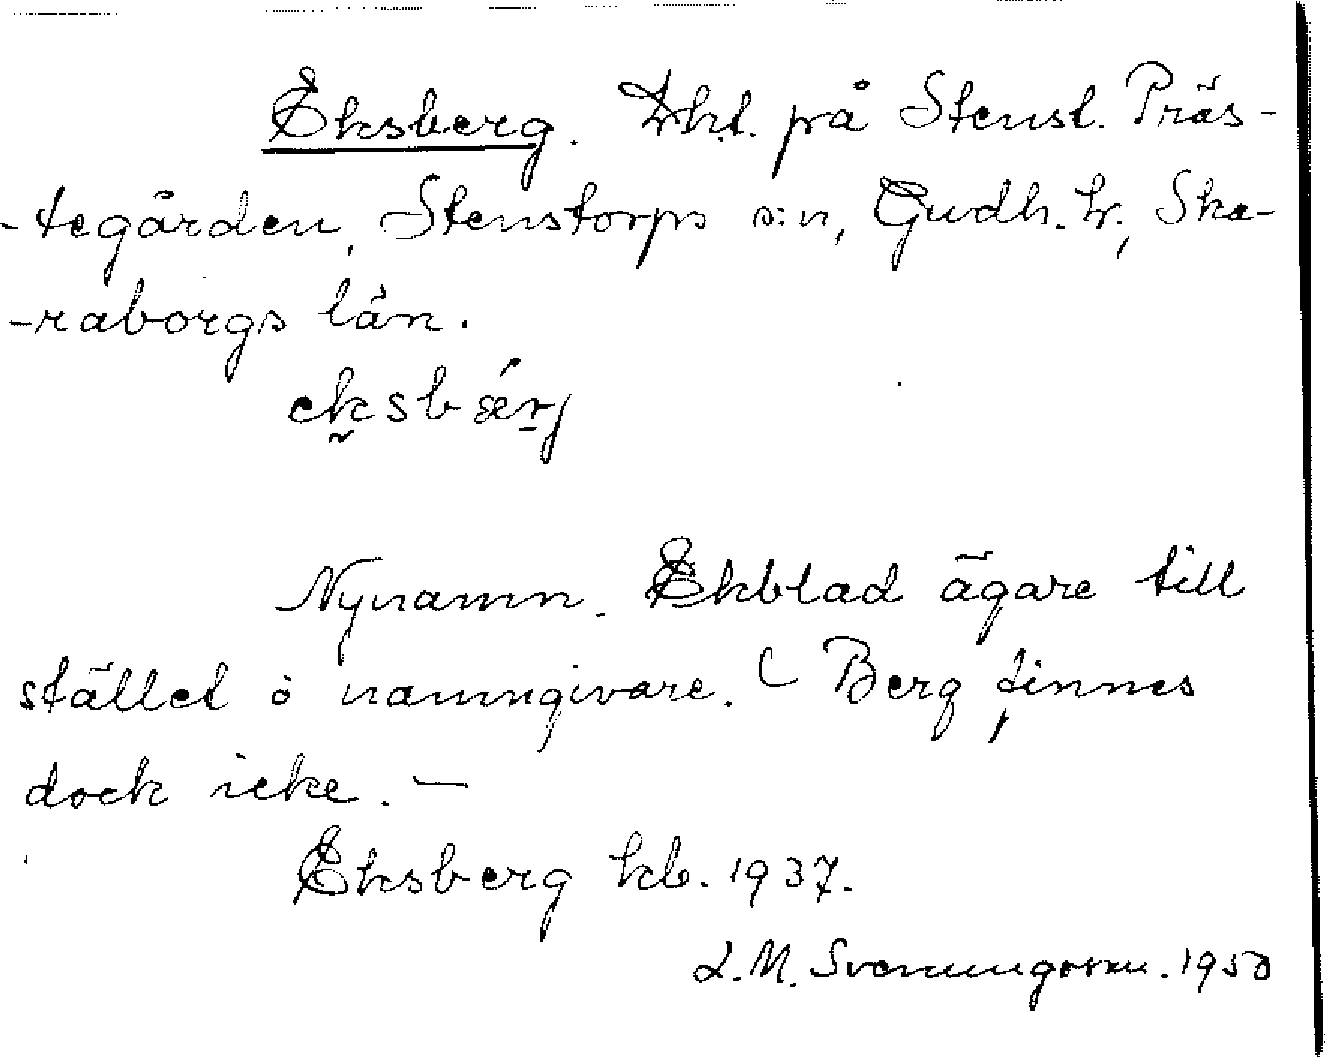 Eksberg. Lht. på Stenst. Präs-
-tegården, Stenstorps s:n, Gudh. hr., Ska-
-raborgs län.
eksbærj
Nynamn. Ekblad ägare till
stället o namngivare. Berg finnes
dock icke. —
Eksberg kb. 1937.
L.M. Svenungsson. 1950